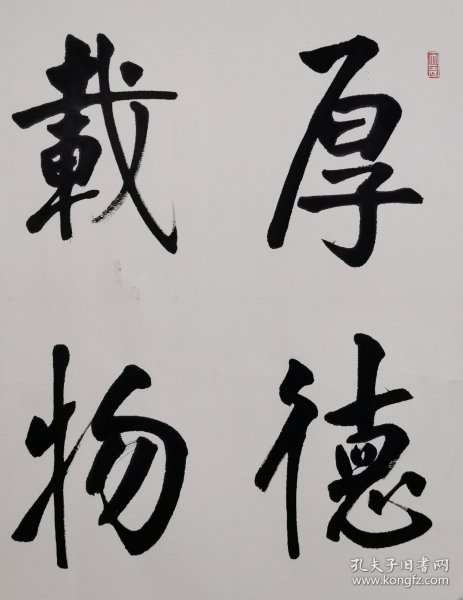 厚德
載物
孔夫子旧书网
www.kongfz.com